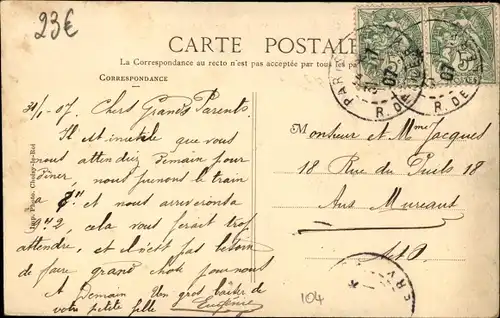 23€
CARTE POSTALE
La Correspondance au recto n'est pas acceptée par tous les
CORRESPONDANCE
31/1-07. Chers Grands Parents.
Il est inutile que vous
nous attendiez demain pour
dîner, nous prenons le train
à et nous arriverons à
9h2, cela vous ferait trop
attendre, et il n'est pas besoin
de faire grand chose pour nous
A Demain Un gros baiser de
votre petite fille Eugénie
Imp. Photo. Choisy-le-Roi
Monsieur et Mme Jacques
18 Rue du Puits 18
Aux Mureaux
S et O.
104
PARIS
07
R. DE
07
R. DE